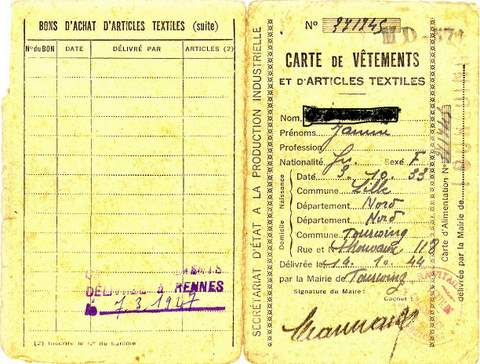 BONS D'ACHAT D'ARTICLES TEXTILES (suite)
N° du BON DATE DÉLIVRÉ PAR ARTICLES (2)
DÉL À RENNES
le 7.3.1947
(2) Inscrire le N° du
SECRÉTARIAT D'ÉTAT A LA PRODUCTION INDUSTRIELLE
N° 371845
CARTE DE VÊTEMENTS
ET D'ARTICLES TEXTILES
Nom
Prénoms
Profession
Nationalité fr. Sexe F
Naissance
Date 3. 10. 33
Commune Lille
Département Nord
Domicile
Département Nord
Commune Tourcoing
Rue et N° 117
Délivrée le 19. 10. 44
par la Mairie de Tourcoing
Signature du Maire: Cachet:
Carte d'Alimentation N°
délivrée par la Mairie de